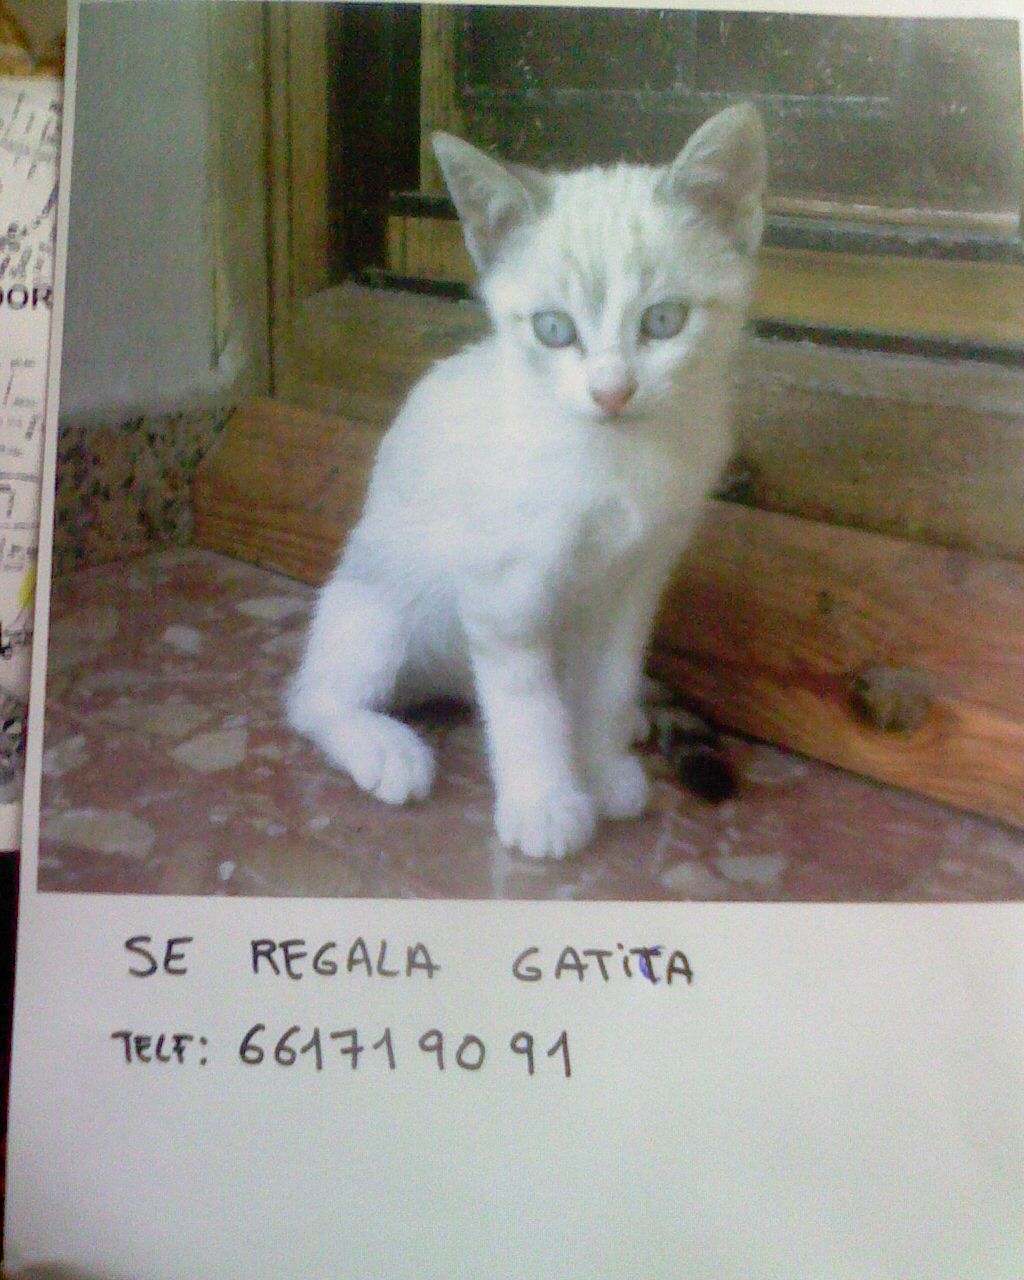 DOR
SE REGALA GATiTA
TELF: 661719091